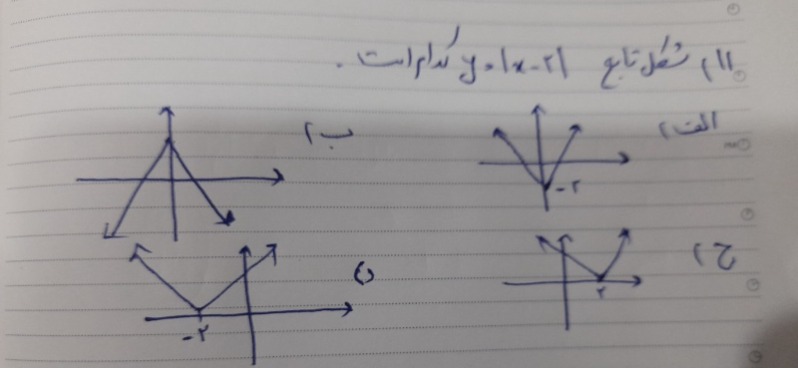 ۱۱) شکل تابع y = |x - ۲| کدام است .
الف) ب)
-۲
ج) د)
۲ -۲